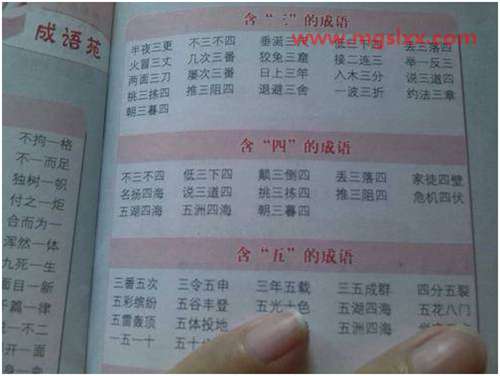 成语苑
不拘一格
不一而足
独树一帜
付之一炬
合而为一
浑然一体
九死一生
千篇一律
一不二
开一面
含“三”的成语
www.mgslxx.com
半夜三更 不三不四 垂涎三尺 低三下四 丢三落四
火冒三丈 几次三番 狡兔三窟 接二连三 举一反三
两面三刀 屡次三番 日上三竿 入木三分 说三道四
挑三拣四 推三阻四 退避三舍 一波三折 约法三章
朝三暮四
含“四”的成语
不三不四 低三下四 颠三倒四 丢三落四 家徒四壁
名扬四海 说三道四 挑三拣四 推三阻四 危机四伏
五湖四海 五洲四海 朝三暮四
含“五”的成语
三番五次 三令五申 三年五载 三五成群 四分五裂
五彩缤纷 五谷丰登 五光十色 五湖四海 五花八门
五雷轰顶 五体投地 五洲四海
一五一十 五十